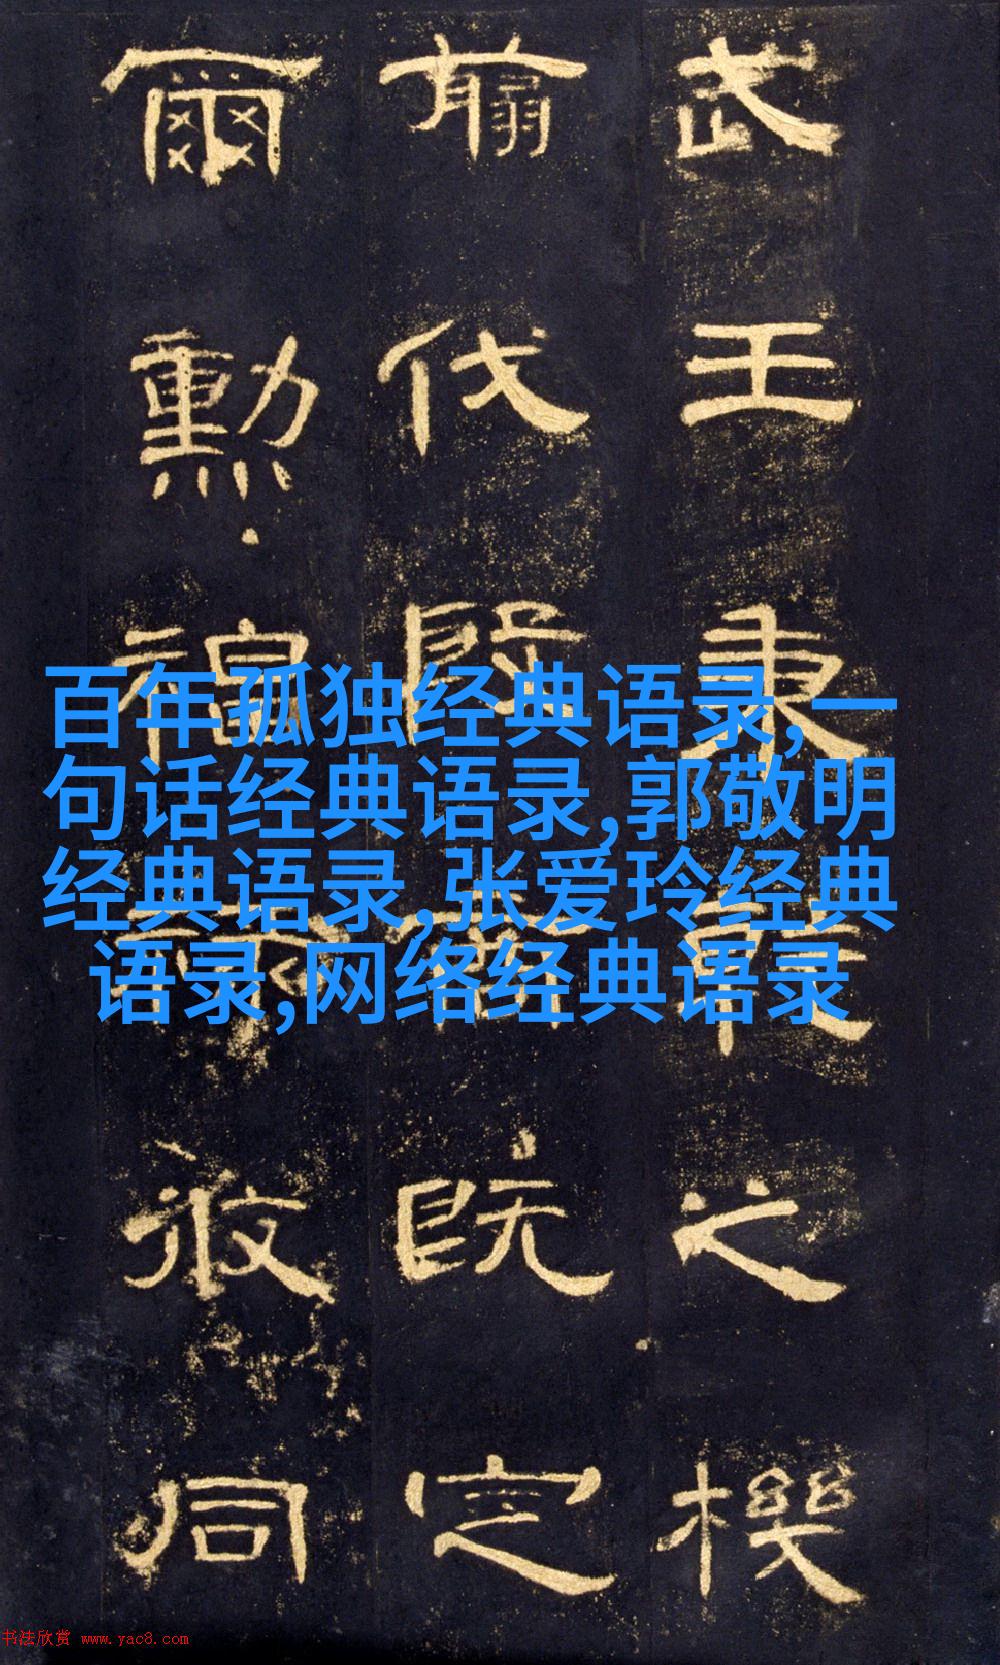 武王秉乾之機
翦伐殷商既定
爾勳福祿攸同
百年孤独经典语录,一
句话经典语录,郭敬明
经典语录,张爱玲经典
语录,网络经典语录
书法欣赏 www.yac8.com